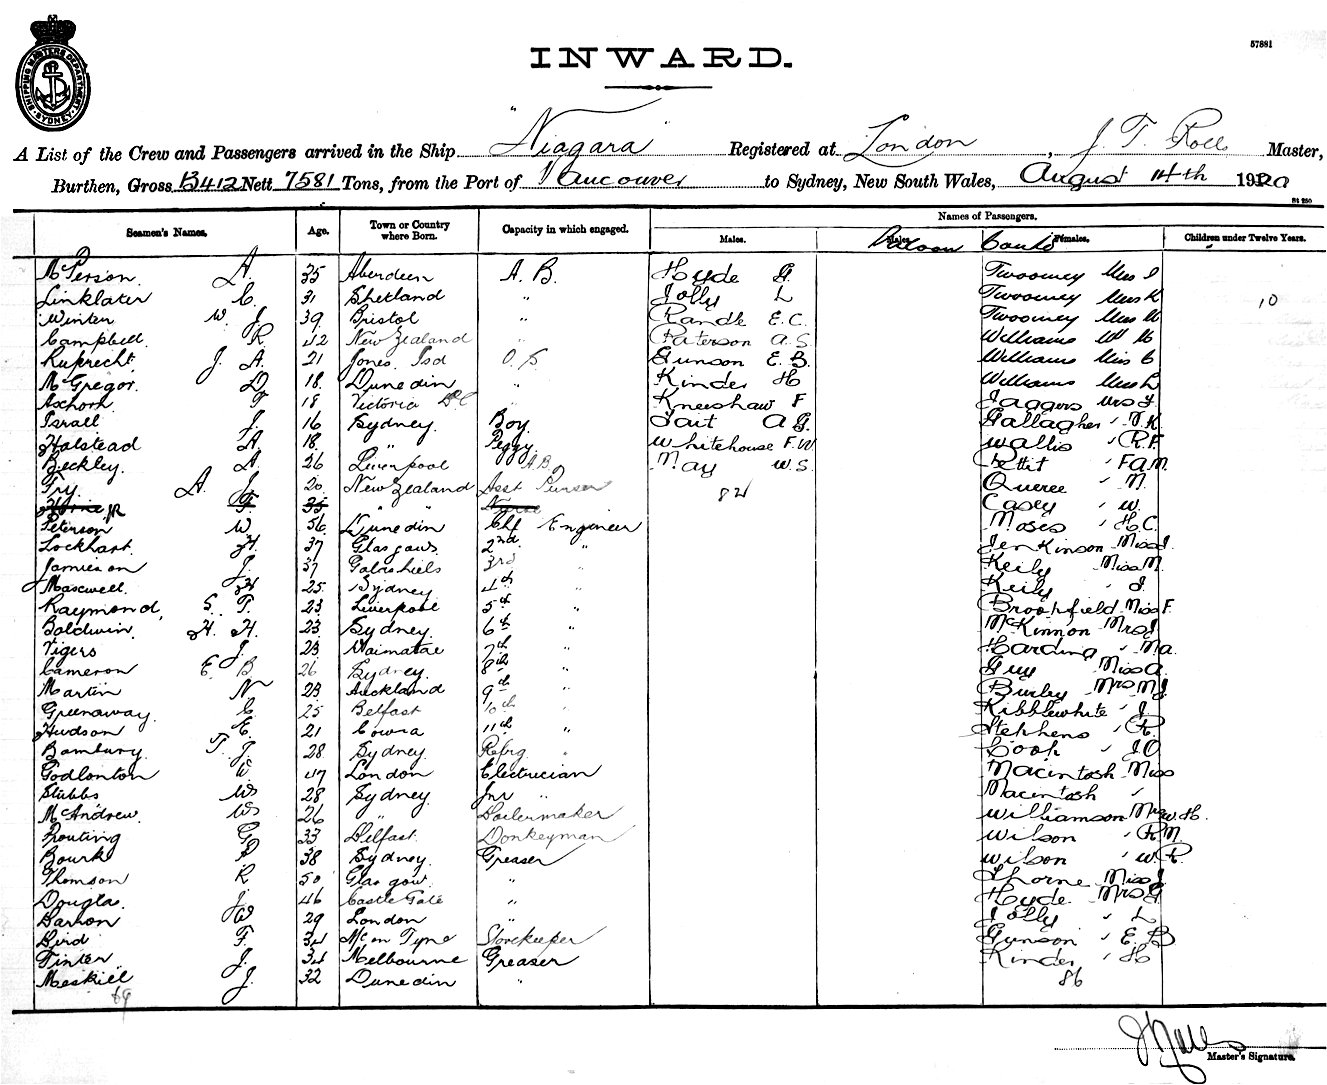 SHIPPING MASTERS DEPARTMENT · SYDNEY ·
57881
INWARD.
A List of the Crew and Passengers arrived in the Ship "Niagara" Registered at London, J. T. Rolls Master,
Burthen, Gross 13412 Nett 7581 Tons, from the Port of Vancouver to Sydney, New South Wales, August 14th 1920
St 250
Seamen's Names. Age. Town or Country where Born. Capacity in which engaged. Names of Passengers.
Males. Males. Saloon Females. Children under Twelve Years.
McPerson A. 35 Aberdeen A. B. Hyde G. Twoomey Miss I
Linklater C. 31 Shetland " Jolly L Twoomey Miss K 10
Winter W J. 39 Bristol " Rande E. C. Twoomey Miss M
Campbell. R. 42 New Zealand " Paterson A. S. Williams
Ruprecht. J. A. 21 Jones. Isd O. S Gunson E. B. Williams Miss C
McGregor. D. 18. Dunedin " Kinder H Williams Miss L
Aschorn F 18 Victoria B.C " Kneeshaw F Jaggers Mrs F.
Israll J. 16 Sydney. Boy. Tait A G. Gallagher " V. K
Halstead A. 18. " Peggy. Whitehouse F. W. Wallis " R. F.
Beckley. A. 26 Liverpool A.B. May W. S. Pettit " F A M.
Fry. A. J. 20 New Zealand Asst Purser 84 Queree " N.
F 35 " " Nurse Casey " W.
Peterson W. 56 Dunedin Chf Engineer Moses " H C.
Lockhart. H. 37 Glasgow 2nd " Jenkinson Miss J.
Jamieson J. 37 Galashiels 3rd " Keily Miss M.
Maxwell. H 25. Sydney 4th " Keily " J.
Raymond, S. T. 23 Liverpool 5th " Brookfield Miss F.
Baldwin. H. H. 23 Sydney. 6th " McKinnon Mrs J.
Vigers J. 23 Waimatae 7th " Harding " M a.
Cameron E. B 26 Sydney. 8th " Guy Miss A.
Martin N. 23 Auckland 9th " Burley Mrs M J.
Greenaway. C. 25 Belfast 10th " Kibblewhite " J.
Hudson E. 21 Cowra 11th " Stephens " R.
Bambury. T. J. 28. Sydney Refrg " Cook " J O
Godlonton W. 47 London Electrician Macintosh Miss
Stubbs W 28 Sydney. Jnr " Macintosh "
McAndrew. W 26 " Boilermaker Williamson Mrs W. H.
Routing G 33 Belfast. Donkeyman Wilson " R. M.
Bourke P 38 Sydney. Greaser Wilson " W. R.
Thomson R 50 Glasgow " Thorne Miss J.
Douglas. J. 46 Castle Gate " Hyde Mrs G
Barron W 29 London " Jolly " L
Bird F. 34 N/c on Tyne Storekeeper Gunson " E. B
Tinter J. 34 Melbourne Greaser Kinder " H
Meskill J. 32 Dunedin " 86
69
Master's Signature.